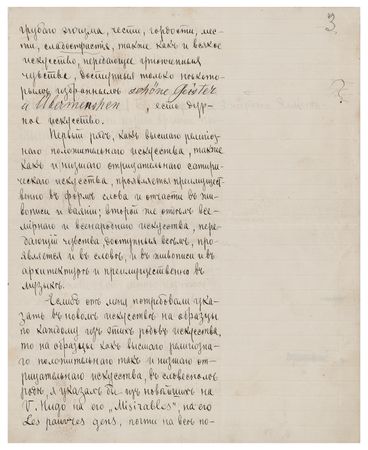 3.
грубаго эгоизма, чести, гордости, ме-
сти, сладострастія, также какъ и всякое
искусство, передающее утонченныя
чувства, доступныя только нѣкото-
рымъ избраннымъ schöne Geister
и Übermenschen, есть дур-
ное искусство.
Первый родъ, какъ высшаго религіоз-
наго положительнаго искусства, также
какъ и низшаго отрицательнаго сатири-
ческаго искусства, проявляется преимущест-
венно въ формѣ слова и отчасти въ жи-
вописи и ваяніи; второй же отдѣлъ все-
мірнаго и всенароднаго искусства, пере-
дающій чувства, доступныя всѣмъ, про-
является и въ словѣ, и въ живописи и въ
архитектурѣ и преимущественно въ
музыкѣ.
Еслибъ отъ меня потребовали ука-
зать въ новомъ искусствѣ на образцы
по каждому изъ этихъ родовъ искусства,
то на образцы какъ высшаго религіоз-
наго положительнаго такъ и низшаго от-
рицательнаго искусства, въ словесномъ
родѣ, я указалъ бы изъ новѣйшихъ на
V. Hugo на его „Misérables", на его
Les pauvres gens, почти на всѣ по-